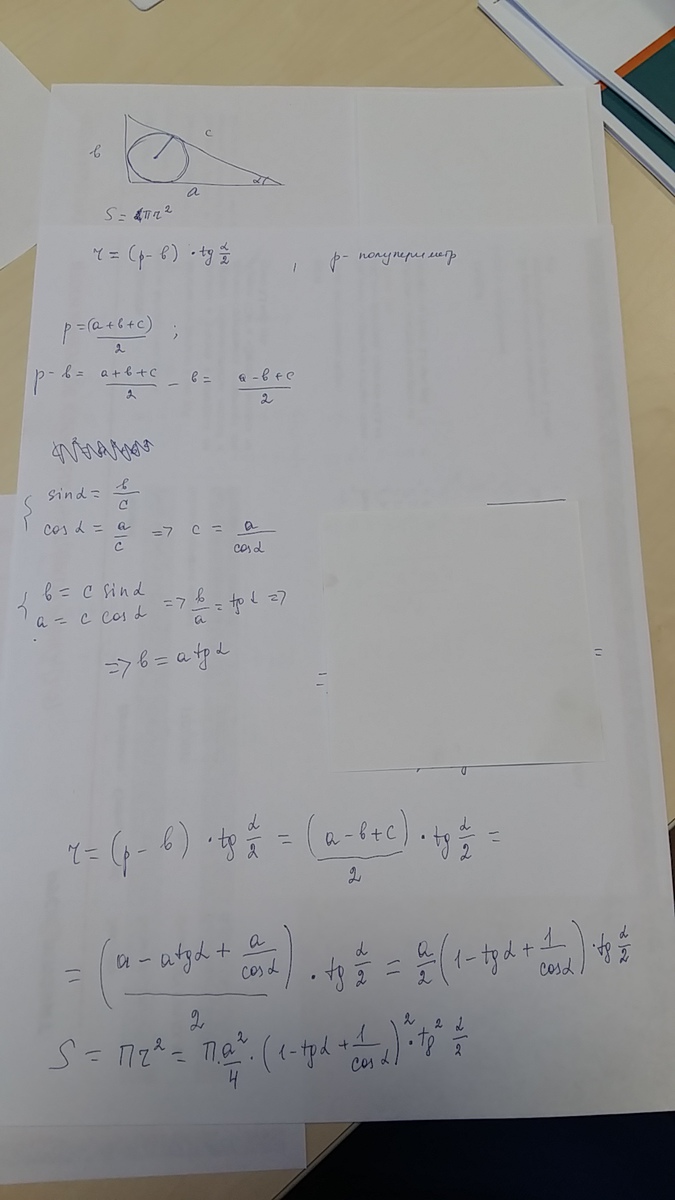 в
c
a
α
S = πr²
r = (p – в) · tg α/2 , p – полупериметр
p = (a+в+c)/2 ;
p – в = (a+в+c)/2 – в = (a–в+c)/2
{ sinα = в/c
cosα = a/c => c = a/cosα
{ в = c sinα
a = c cosα => в/a = tgα =>
=> в = a tgα
=
=
r = (p – в) · tg α/2 = (a–в+c)/2 · tg α/2 =
= (a – atgα + a/cosα)/2 · tg α/2 = a/2 (1–tgα + 1/cosα) · tg α/2
S = πr² = π·a²/4 · (1–tgα + 1/cosα)² · tg² α/2